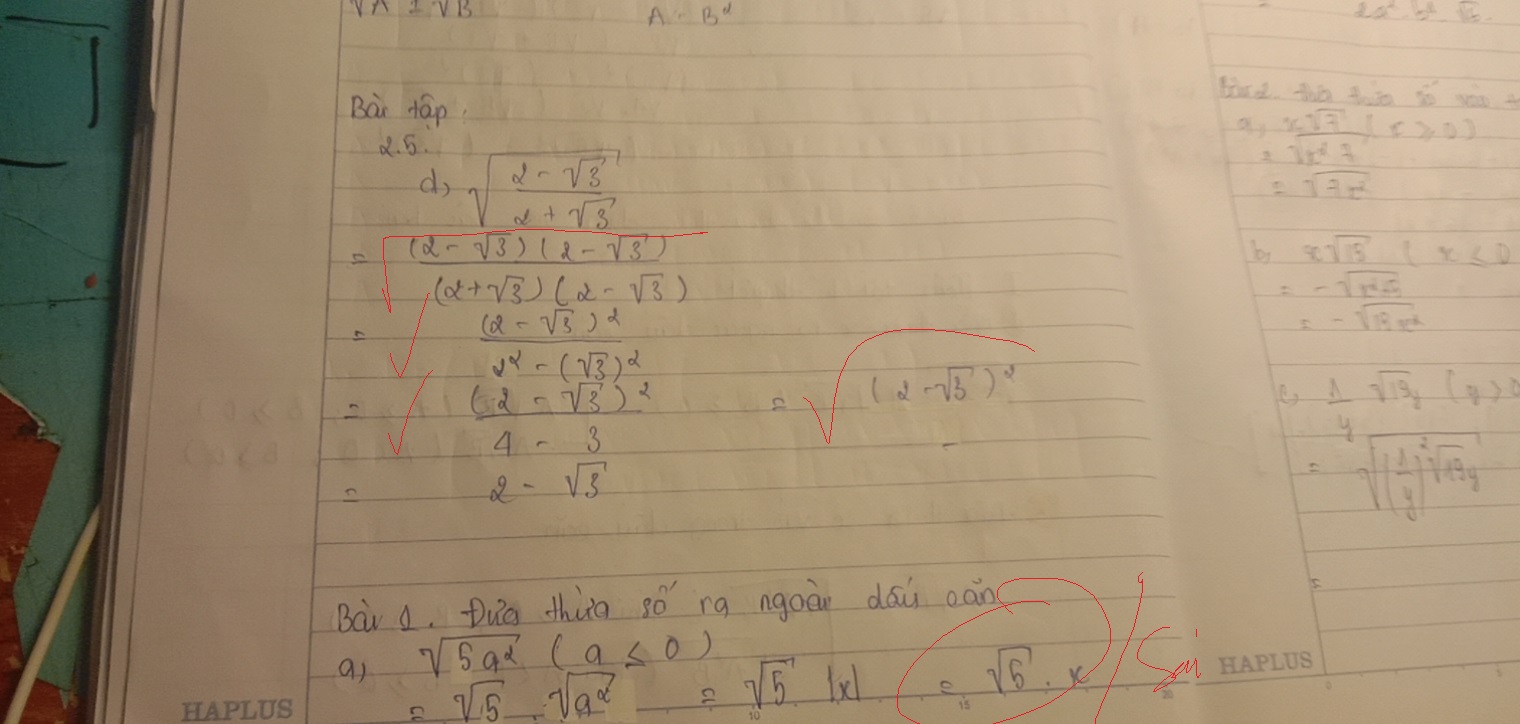 √A ± √B
A - B²
Bài tập:
2.5.
d, √((2 - √3)/(2 + √3))
= √((2 - √3)(2 - √3)/((2 + √3)(2 - √3)))
= √((2 - √3)²/(2² - (√3)²))
= √((2 - √3)²/(4 - 3)) = √(2 - √3)²
= 2 - √3
Bài 1. Đưa thừa số ra ngoài dấu căn
a, √5a² (a ≤ 0)
= √5 . √a² = √5 |x| = √5 . x Sai
HAPLUS
thừa số vào
a, x√7 (x ≥ 0)
= √x² 7
= √7x²
b, x√15 (x ≤ 0
= -√x²15
= -√15x²
c, 1/y √19y (y > 0
= √((1/y)² √19y
=
HAPLUS